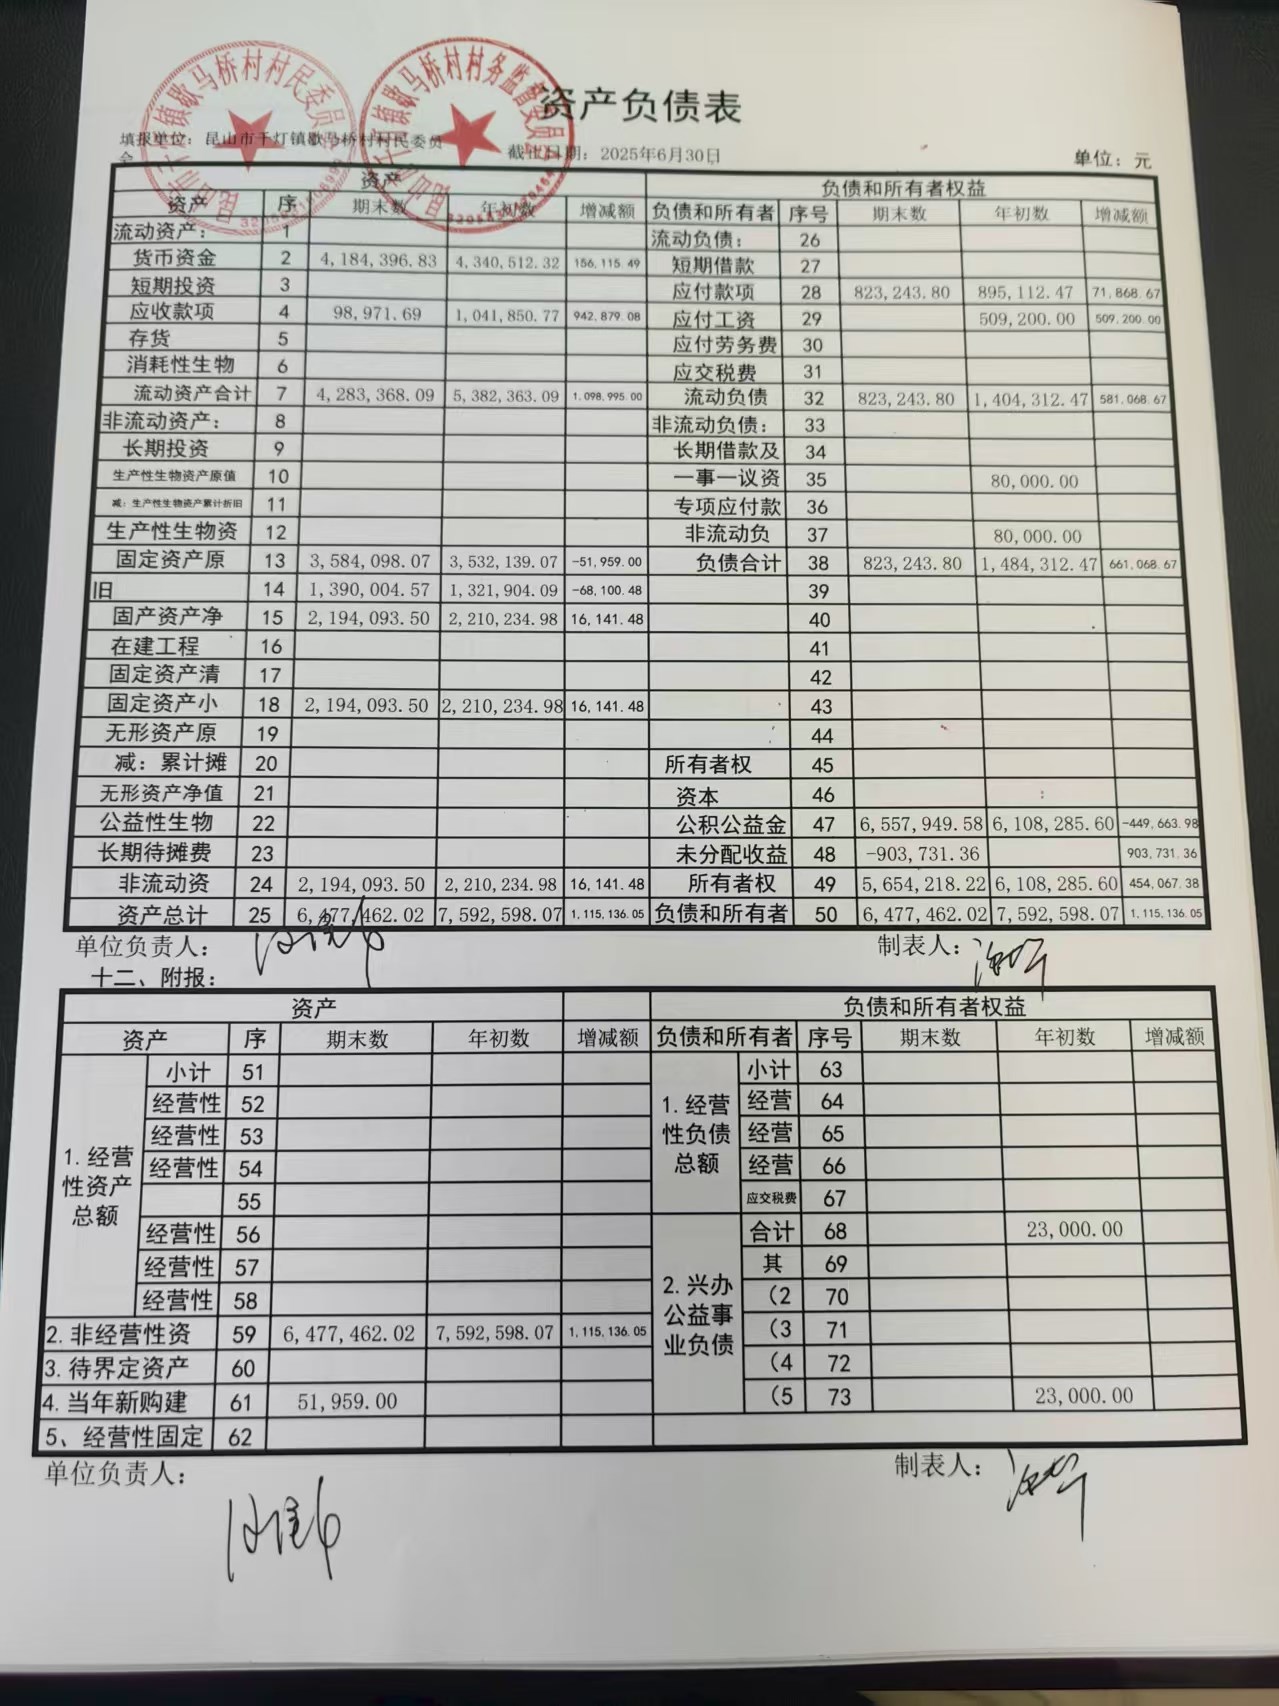 资产负债表
填报单位：昆山市千灯镇歇马桥村村民委员
会
截止日期：2025年6月30日
单位：元
资产 负债和所有者权益
资产 序 期末数 年初数 增减额 负债和所有者 序号 期末数 年初数 增减额
流动资产： 1 流动负债： 26
货币资金 2 4,184,396.83 4,340,512.32 156,115.49 短期借款 27
短期投资 3 应付款项 28 823,243.80 895,112.47 71,868.67
应收款项 4 98,971.69 1,041,850.77 942,879.08 应付工资 29 509,200.00 509,200.00
存货 5 应付劳务费 30
消耗性生物 6 应交税费 31
流动资产合计 7 4,283,368.09 5,382,363.09 1,098,995.00 流动负债 32 823,243.80 1,404,312.47 581,068.67
非流动资产： 8 非流动负债： 33
长期投资 9 长期借款及 34
生产性生物资产原值 10 一事一议资 35 80,000.00
减：生产性生物资产累计折旧 11 专项应付款 36
生产性生物资 12 非流动负 37 80,000.00
固定资产原 13 3,584,098.07 3,532,139.07 -51,959.00 负债合计 38 823,243.80 1,484,312.47 661,068.67
旧 14 1,390,004.57 1,321,904.09 -68,100.48 39
固产资产净 15 2,194,093.50 2,210,234.98 16,141.48 40
在建工程 16 41
固定资产清 17 42
固定资产小 18 2,194,093.50 2,210,234.98 16,141.48 43
无形资产原 19 44
减：累计摊 20 所有者权 45
无形资产净值 21 资本 46
公益性生物 22 公积公益金 47 6,557,949.58 6,108,285.60 -449,663.98
长期待摊费 23 未分配收益 48 -903,731.36 903,731.36
非流动资 24 2,194,093.50 2,210,234.98 16,141.48 所有者权 49 5,654,218.22 6,108,285.60 454,067.38
资产总计 25 6,477,462.02 7,592,598.07 1,115,136.05 负债和所有者 50 6,477,462.02 7,592,598.07 1,115,136.05
单位负责人： 制表人：
十二、附报：
资产 负债和所有者权益
资产 序 期末数 年初数 增减额 负债和所有者 序号 期末数 年初数 增减额
1.经营性资产总额 小计 51 1.经营性负债总额 小计 63
经营性 52 经营 64
经营性 53 经营 65
经营性 54 经营 66
55 应交税费 67
经营性 56 2.兴办公益事业负债 合计 68 23,000.00
经营性 57 其 69
经营性 58 （2 70
2.非经营性资 59 6,477,462.02 7,592,598.07 1,115,136.05 （3 71
3.待界定资产 60 （4 72
4.当年新购建 61 51,959.00 （5 73 23,000.00
5、经营性固定 62
单位负责人： 制表人：